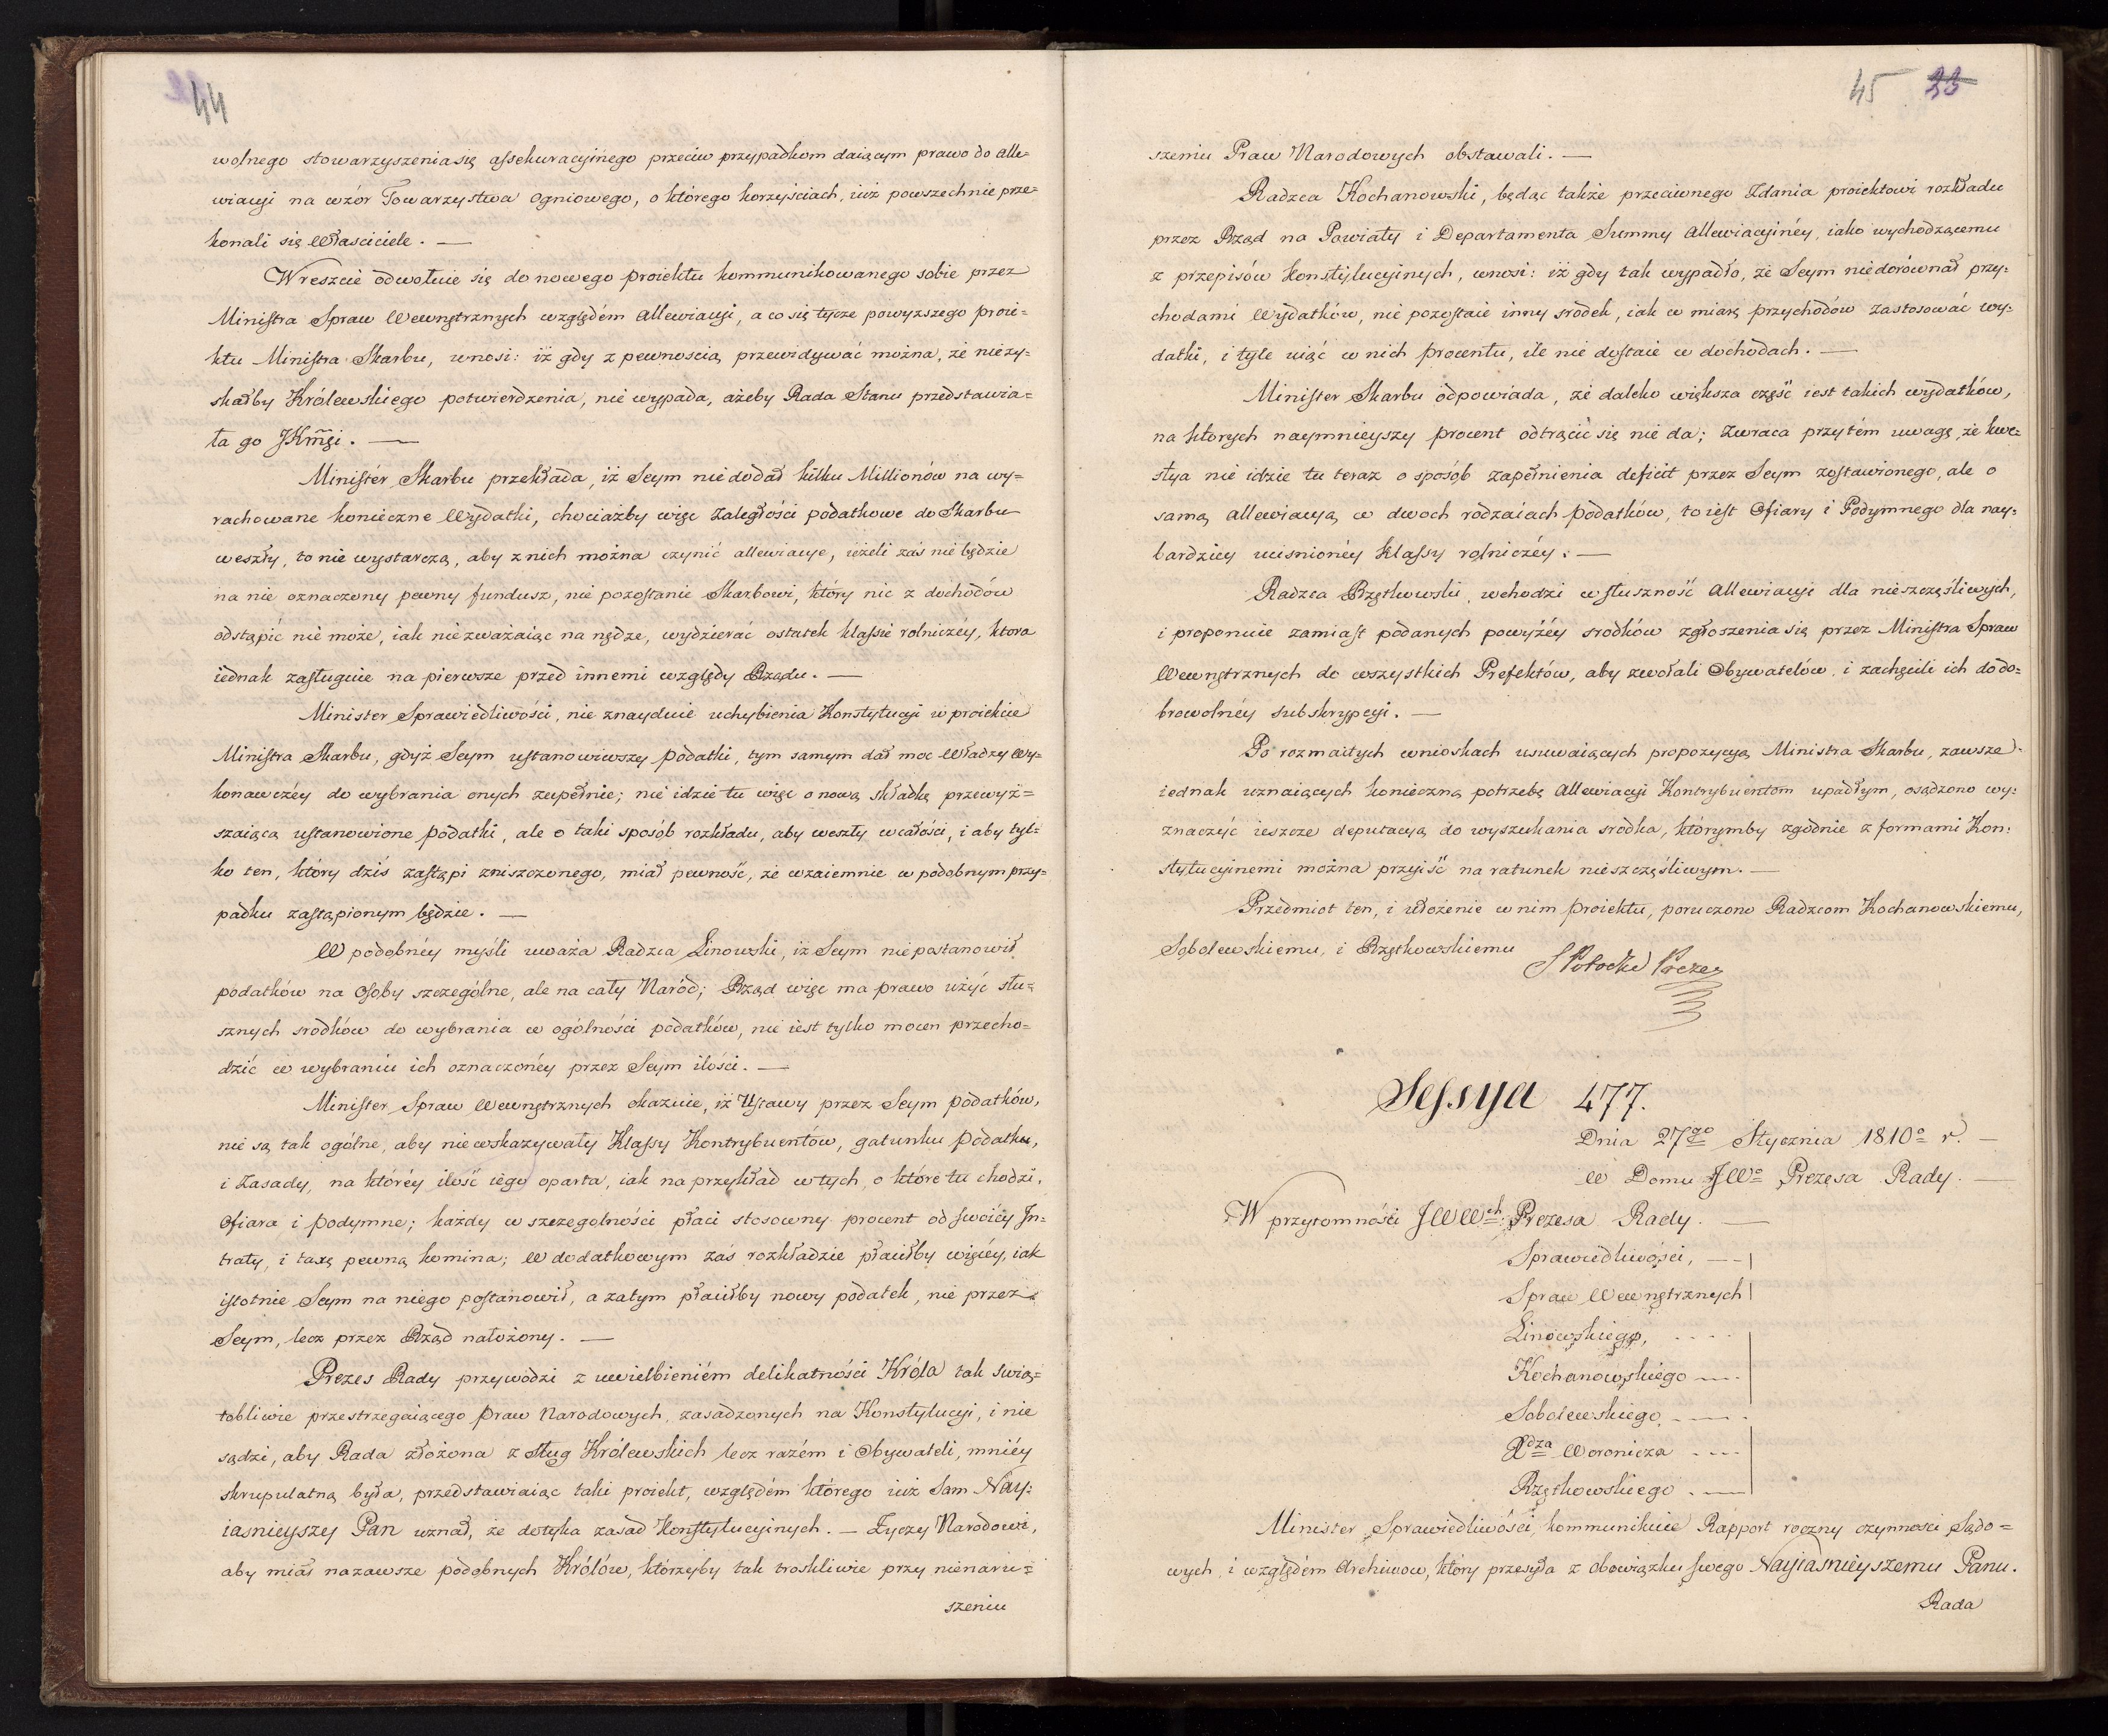 44
wolnego stowarzyszenia się assekuracyinego przeciw przypadkom daiącym prawo do alle=
wiacyi na wzór Towarzystwa Ogniowego, o którego korzyściach, iuż powszechnie prze=
konali się Właściciele. —
Wreszcie odwołuie się do nowego proiektu kommunikowanego sobie przez
Ministra Spraw Wewnętrznych względém allewiacyi, a co się tycze powyższego proie=
ktu Ministra Skarbu, wnosi: iż gdy z pewnością przewidywać można, że nie zy=
skałby Królewskiego potwierdzenia, nie wypada, ażeby Rada Stanu przedstawia=
ła go JKmści. —
Ministér Skarbu przekłada, iż Seym nie dodał kilku Millionów na wy=
rachowane konieczne Wydatki, chociażby więc Zaległości podatkowe do Skarbu
weszły, to nie wystarczą, aby z nich można czynić allewiacye, ieżeli zaś nie będzie
na nie oznaczony pewny fundusz, nie pozostanie Skarbowi, który nic z dochodów
odstąpić nie może, iak nie zważaiąc na nędze, wydzierać ostatek klassie rolniczéy, ktora
iednak zasługuie na pierwsze przed innemi względy Rządu. —
Minister Sprawiedliwości, nie znayduie uchybienia Konstytucyi w proiekcie
Ministra Skarbu, gdyż Seym ustanowiwszy podatki, tym samym dał moc Władzy Wy=
konawczéy do wybrania onych zupełnie; nie idzie tu więc o nową składkę przewyż=
szaiącą ustanowione podatki, ale o taki sposób rozkładu, aby weszły w całości, i aby tyl=
ko ten, który dziś zastąpi zniszczonego, miał pewność, że wzaiemnie w podobnym przy=
padku zastąpionym będzie. —
W podobnéy myśli uważa Radzca Linowski, iż Seym nie postanowił
podatków na Osoby szczególne, ale na cały Naród; Rząd więc ma prawo użyć słu=
sznych srodków do wybrania w ogólności podatków, nie iest tylko mocen przecho=
dzić w wybraniu ich oznaczonéy przez Seym ilości. —
Minister Spraw Wewnętrznych okazuie, iż Ustawy przez Seym podatków,
nie są tak ogólne, aby nie wskazywały Klassy Kontrybuentów, gatunku podatku,
i Zasady, na któréy ilość iego oparta, iak na przykład w tych, o które tu chodzi,
Ofiara i podymne; każdy w szczegolności płaci stosowny procent od swoiéy In=
traty, i taxę pewną komina; W dodatkowym zaś rozkładzie płaciłby więcéy, iak
istotnie Seym na niego postanowił, a zatym płaciłby nowy podatek, nie przez
Seym, lecz przez Rząd nałożony. —
Prezes Rady przywodzi z uwielbieniém delikatności Króla tak świą=
tobliwie przestrzegaiącego praw Narodowych, zasadzonych na Konstytucyi, i nie
sądzi, aby Rada złożona z sług Królewskich lecz razém i Obywateli, mniéy
skrupulatną była, przedstawiaiąc taki proiekt, względém którego iuż Sam Nay=
iasnieyszy Pan uznał, że dotyka zasad Konstytucyinych. — Życzy Narodowi,
aby miał nazawsze podobnych Królów, którzyby tak troskliwie przy nienaru=
szeniu
45 33
szeniu Praw Narodowych obstawali. —
Radzca Kochanowski, będąc także przeciwnego Zdania proiektowi rozkładu
przez Rząd na Powiaty i Departamenta Summy allewiacyinéy, iako wychodzącemu
z przepisów Konstytucyinych, wnosi: iż gdy tak wypadło, że Seym niedorównał przy=
chodami Wydatków, nie pozostaie inny srodek, iak w miarę przychodów zastosować wy=
datki, i tyle uiąć w nich procentu, ile nie dostaie w dochodach. —
Minister Skarbu odpowiada, że daleko większa część iest takich wydatków,
na ktorych naymnieyszy procent odtrącić się nie da; Zwraca przytém uwagę, że kwe=
stya nie idzie tu teraz o sposób zapełnienia deficit przez Seym zostawionego, ale o
samą allewiacyą w dwoch rodzaiach podatków, to iest Ofiary i Podymnego dla nay=
bardziey ucisnionéy Klassy rolniczéy. —
Radzca Rzętkowski, wchodzi w słuszność allewiacyi dla nieszczęśliwych,
i proponuie zamiast podanych powyżéy srodków zgłoszenia się przez Ministra Spraw
Wewnętrznych do wszystkich Prefektów, aby zwołali Obywatelów, i zachęcili ich do do=
browolnéy subskrypcyi. —
Po rozmaitych wnioskach usuwaiących propozycyą Ministra Skarbu, zawsze
iednak uznaiących konieczną potrzebę allewiacyi Kontrybuentom upadłym, osądzono wy=
znaczyć ieszcze deputacyą do wyszukania srodka, którymby zgodnie z formami Kon=
stytucyinemi można przyiść na ratunek nieszczęśliwym. —
Przedmiot ten, i ułożenie w nim proiektu, poruczono Radzcom Kochanowskiemu,
Sobolewskiemu, i Rzętkowskiemu
S Potocki Prezes
Sessya 477.
Dnia 27go Stycznia 1810o r. —
W Domu JWo Prezesa Rady. —
W przytomności JWWch: Prezesa Rady. —
Sprawiedliwości, —
Spraw Wewnętrznych
Linowskiego, . . . .
Kochanowskiego —
Sobolewskiego. —
Xdza Woronicza —
Rzętkowskiego. —
Minister Sprawiedliwości, kommunikuie Rapport roczny czynności Sądo=
wych, i względém Archiwow, ktory przesyła z obowiązku swego Nayiasnieyszemu Panu.
Rada